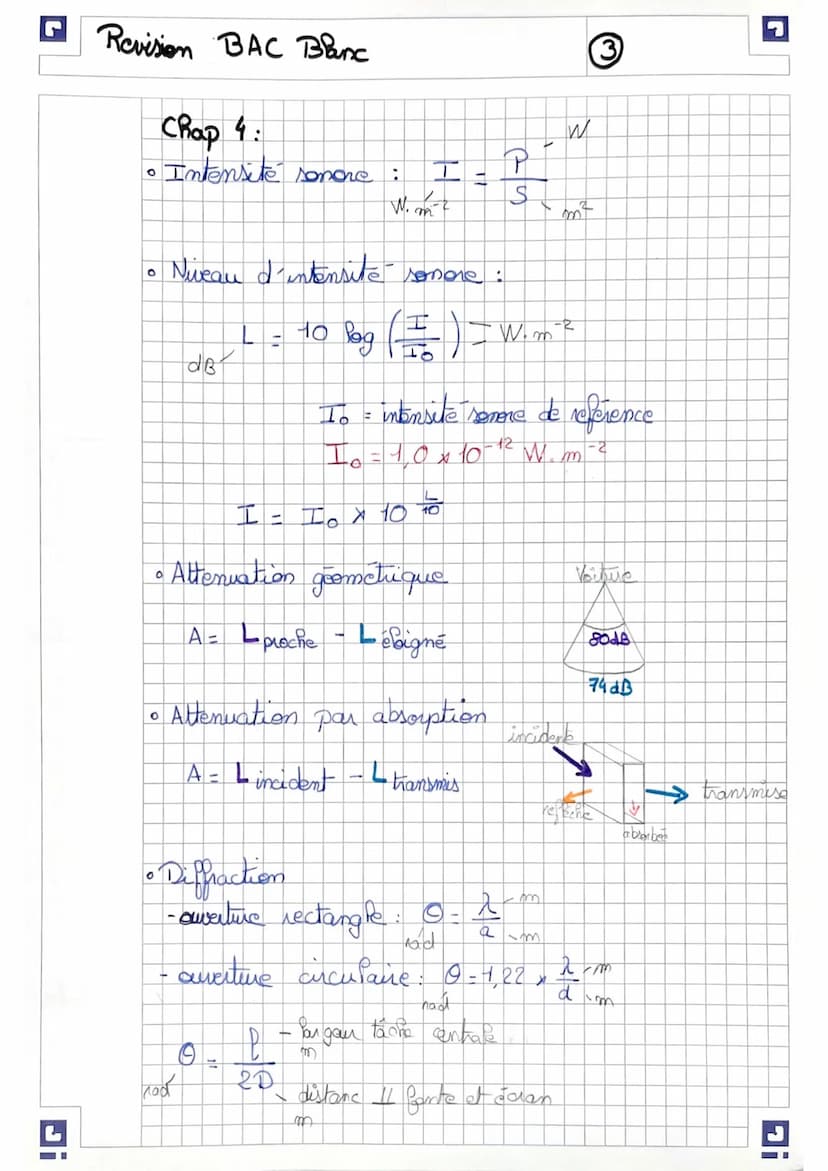 Revision BAC Blanc
3
Chap 4 :
• Intensité sonore : I = P/S
W
W.m⁻²
m²
• Niveau d'intensité sonore :
L = 10 log (I/I₀) = W.m⁻²
dB
I₀ = intensité sonore de reférence
I₀ = 1,0 × 10⁻¹² W.m⁻²
I = I₀ × 10^(L/10)
• Attenuation géométrique
Voiture
A = L proche - L éloigné
80dB
74dB
• Attenuation par absorption
incidente
A = L incident - L transmis
transmise
refléchie
absorbée
• Diffraction
- ouverture rectangle : θ = λ/a
m
rad
m
- ouverture circulaire : θ = 1,22 × λ/d
m
rad
m
θ = l/2D
- largeur tâche centrale
m
rad
distanc ⊥ fente et écran
m